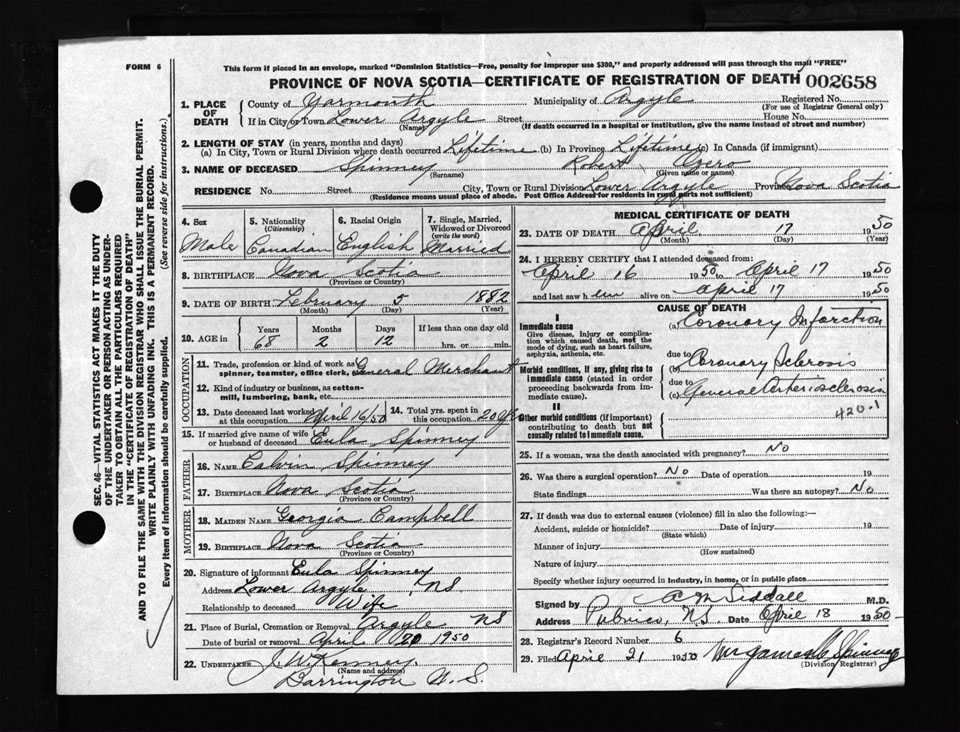 FORM 6
This form if placed in an envelope, marked "Dominion Statistics—Free, penalty for improper use $300," and properly addressed will pass through the mail "FREE"
PROVINCE OF NOVA SCOTIA—CERTIFICATE OF REGISTRATION OF DEATH 002658
1. PLACE OF DEATH
County of Yarmouth Municipality of Argyle Registered No.
(For use of Registrar General only)
If in City or Town Lower Argyle Street House No.
(Name) (If death occurred in a hospital or institution, give the name instead of street and number)
2. LENGTH OF STAY (in years, months and days)
(a) In City, Town or Rural Division where death occurred Lifetime (b) In Province Lifetime (c) In Canada (if immigrant)
3. NAME OF DECEASED Spinney Robert Ozero
(Surname) (Given name or names)
RESIDENCE No. Street City, Town or Rural Division Lower Argyle Province Nova Scotia
(Residence means usual place of abode. Post Office Address for residents in rural parts not sufficient)
4. Sex Male
5. Nationality (Citizenship) Canadian
6. Racial Origin English
7. Single, Married, Widowed or Divorced (write the word) Married
8. BIRTHPLACE Nova Scotia
(Province or Country)
9. DATE OF BIRTH February 5 1882
(Month) (Day) (Year)
10. AGE Years 68 Months 2 Days 12 If less than one day old hrs. or min.
OCCUPATION
11. Trade, profession or kind of work as spinner, teamster, office clerk, General Merchant
12. Kind of industry or business, as cotton-mill, lumbering, bank, etc.
13. Date deceased last worked at this occupation April 16/50
14. Total yrs. spent in this occupation 20 yrs
15. If married give name of wife or husband of deceased Eula Spinney
FATHER
16. NAME Calvin Spinney
17. BIRTHPLACE Nova Scotia
(Province or Country)
MOTHER
18. MAIDEN NAME Georgia Campbell
19. BIRTHPLACE Nova Scotia
(Province or Country)
20. Signature of informant Eula Spinney
Address Lower Argyle NS
Relationship to deceased Wife
21. Place of Burial, Cremation or Removal Argyle NS
Date of burial or removal April 20 1950
22. UNDERTAKER J. W. Kenney
(Name and address)
Barrington N.S.
MEDICAL CERTIFICATE OF DEATH
23. DATE OF DEATH April 17 1950
(Month) (Day) (Year)
24. I HEREBY CERTIFY that I attended deceased from:
April 16 1950 to April 17 1950
and last saw h im alive on April 17 1950
CAUSE OF DEATH
I
Immediate cause
Give disease, injury or complication which caused death, not the mode of dying, such as heart failure, asphyxia, asthenia, etc.
(a) Coronary Infarction
due to
Morbid conditions, if any, giving rise to immediate cause (stated in order proceeding backwards from immediate cause).
(b) Coronary Sclerosis
due to
(c) General arteriosclerosis
420.1
II
Other morbid conditions (if important) contributing to death but not causally related to immediate cause.
25. If a woman, was the death associated with pregnancy? No
26. Was there a surgical operation? No Date of operation 19
State findings Was there an autopsy? No
27. If death was due to external causes (violence) fill in also the following:—
Accident, suicide or homicide? Date of injury 19
(State which)
Manner of injury
(How sustained)
Nature of injury
Specify whether injury occurred in industry, in home, or in public place
Signed by A M Siddall M.D.
Address Pubnico, N.S. Date April 18 1950
28. Registrar's Record Number 6
29. Filed April 21 1950 Mrs James C Spinney
(Division Registrar)
SEC. 46—VITAL STATISTICS ACT MAKES IT THE DUTY
OF THE UNDERTAKER OR PERSON ACTING AS UNDER-
TAKER TO OBTAIN ALL THE PARTICULARS REQUIRED
IN THE "CERTIFICATE OF REGISTRATION OF DEATH"
AND TO FILE THE SAME WITH THE DIVISION REGISTRAR WHO SHALL ISSUE THE BURIAL PERMIT.
WRITE PLAINLY WITH UNFADING INK. THIS IS A PERMANENT RECORD.
Every item of information should be carefully supplied. (See reverse side for instructions.)